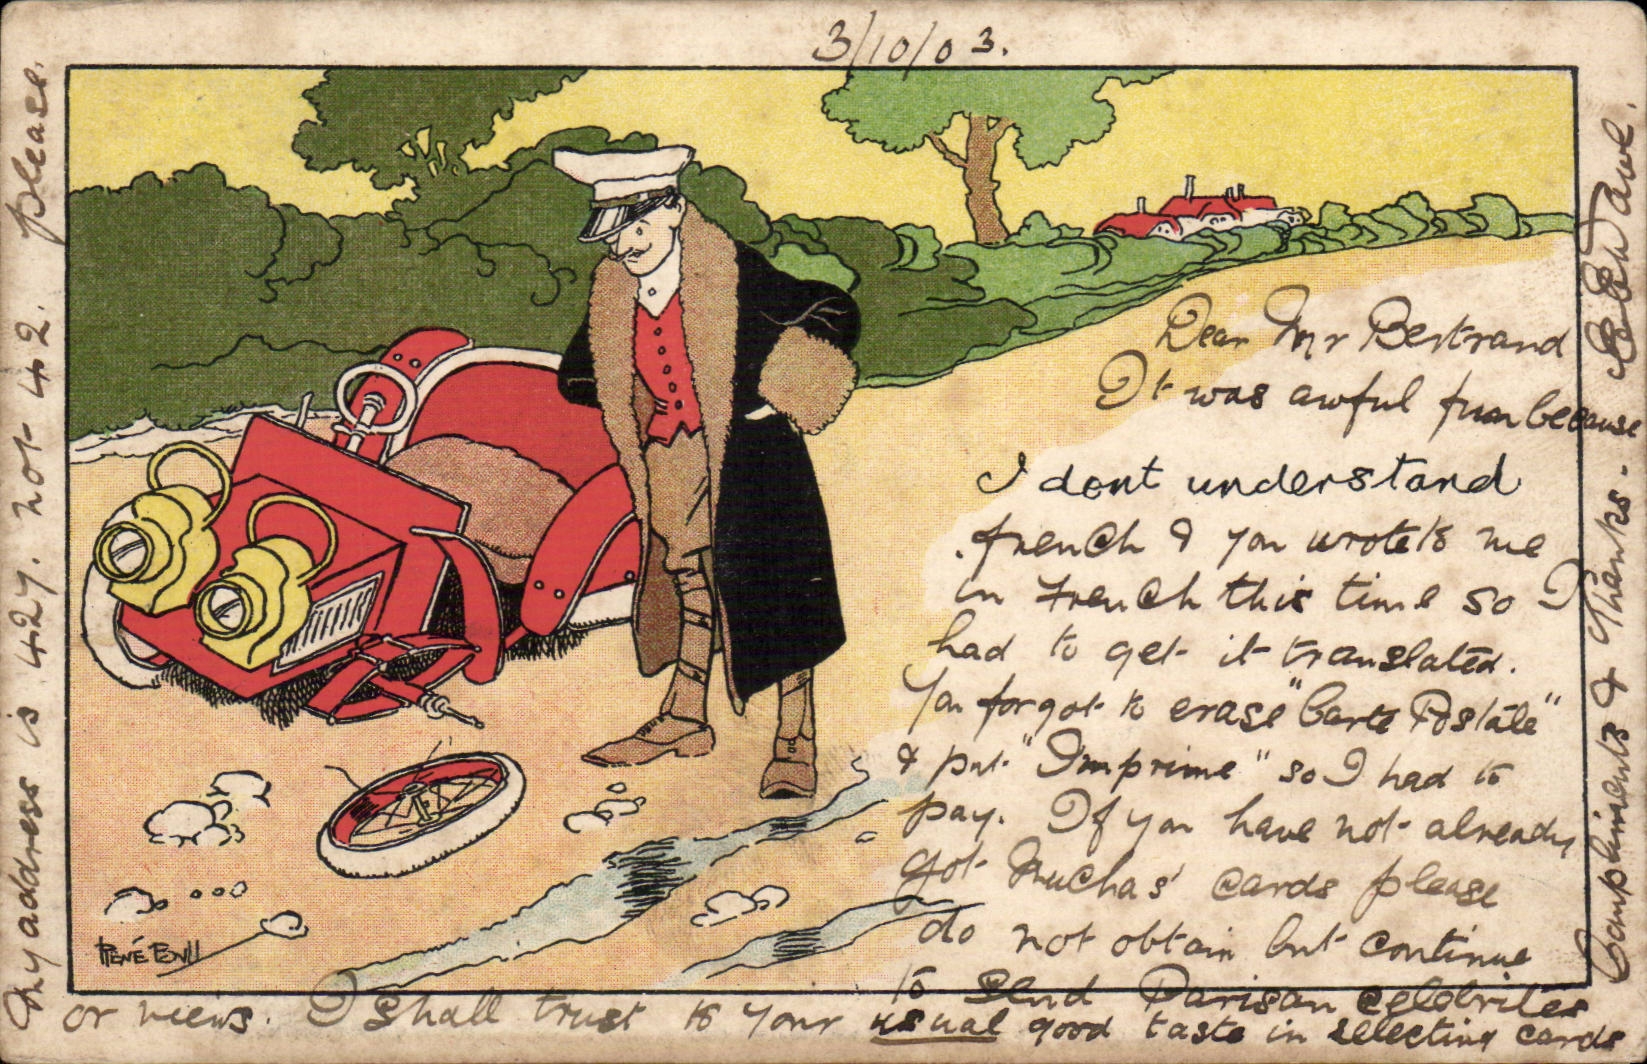 3/10/03.
Dear Mr Bertrand
It was awful fun because
I dont understand
french & you wrote to me
in French this time so I
had to get it translated.
You forgot to erase "Carte Postale"
& put "Imprime" so I had to
pay. If you have not already
got Muchas' cards please
do not obtain but continue
to send Parisan celebrites
or views. I shall trust to your usual good taste in selecting cards
Compliments & Thanks -
My address is 427. not 42. please.
RENÉ BULL